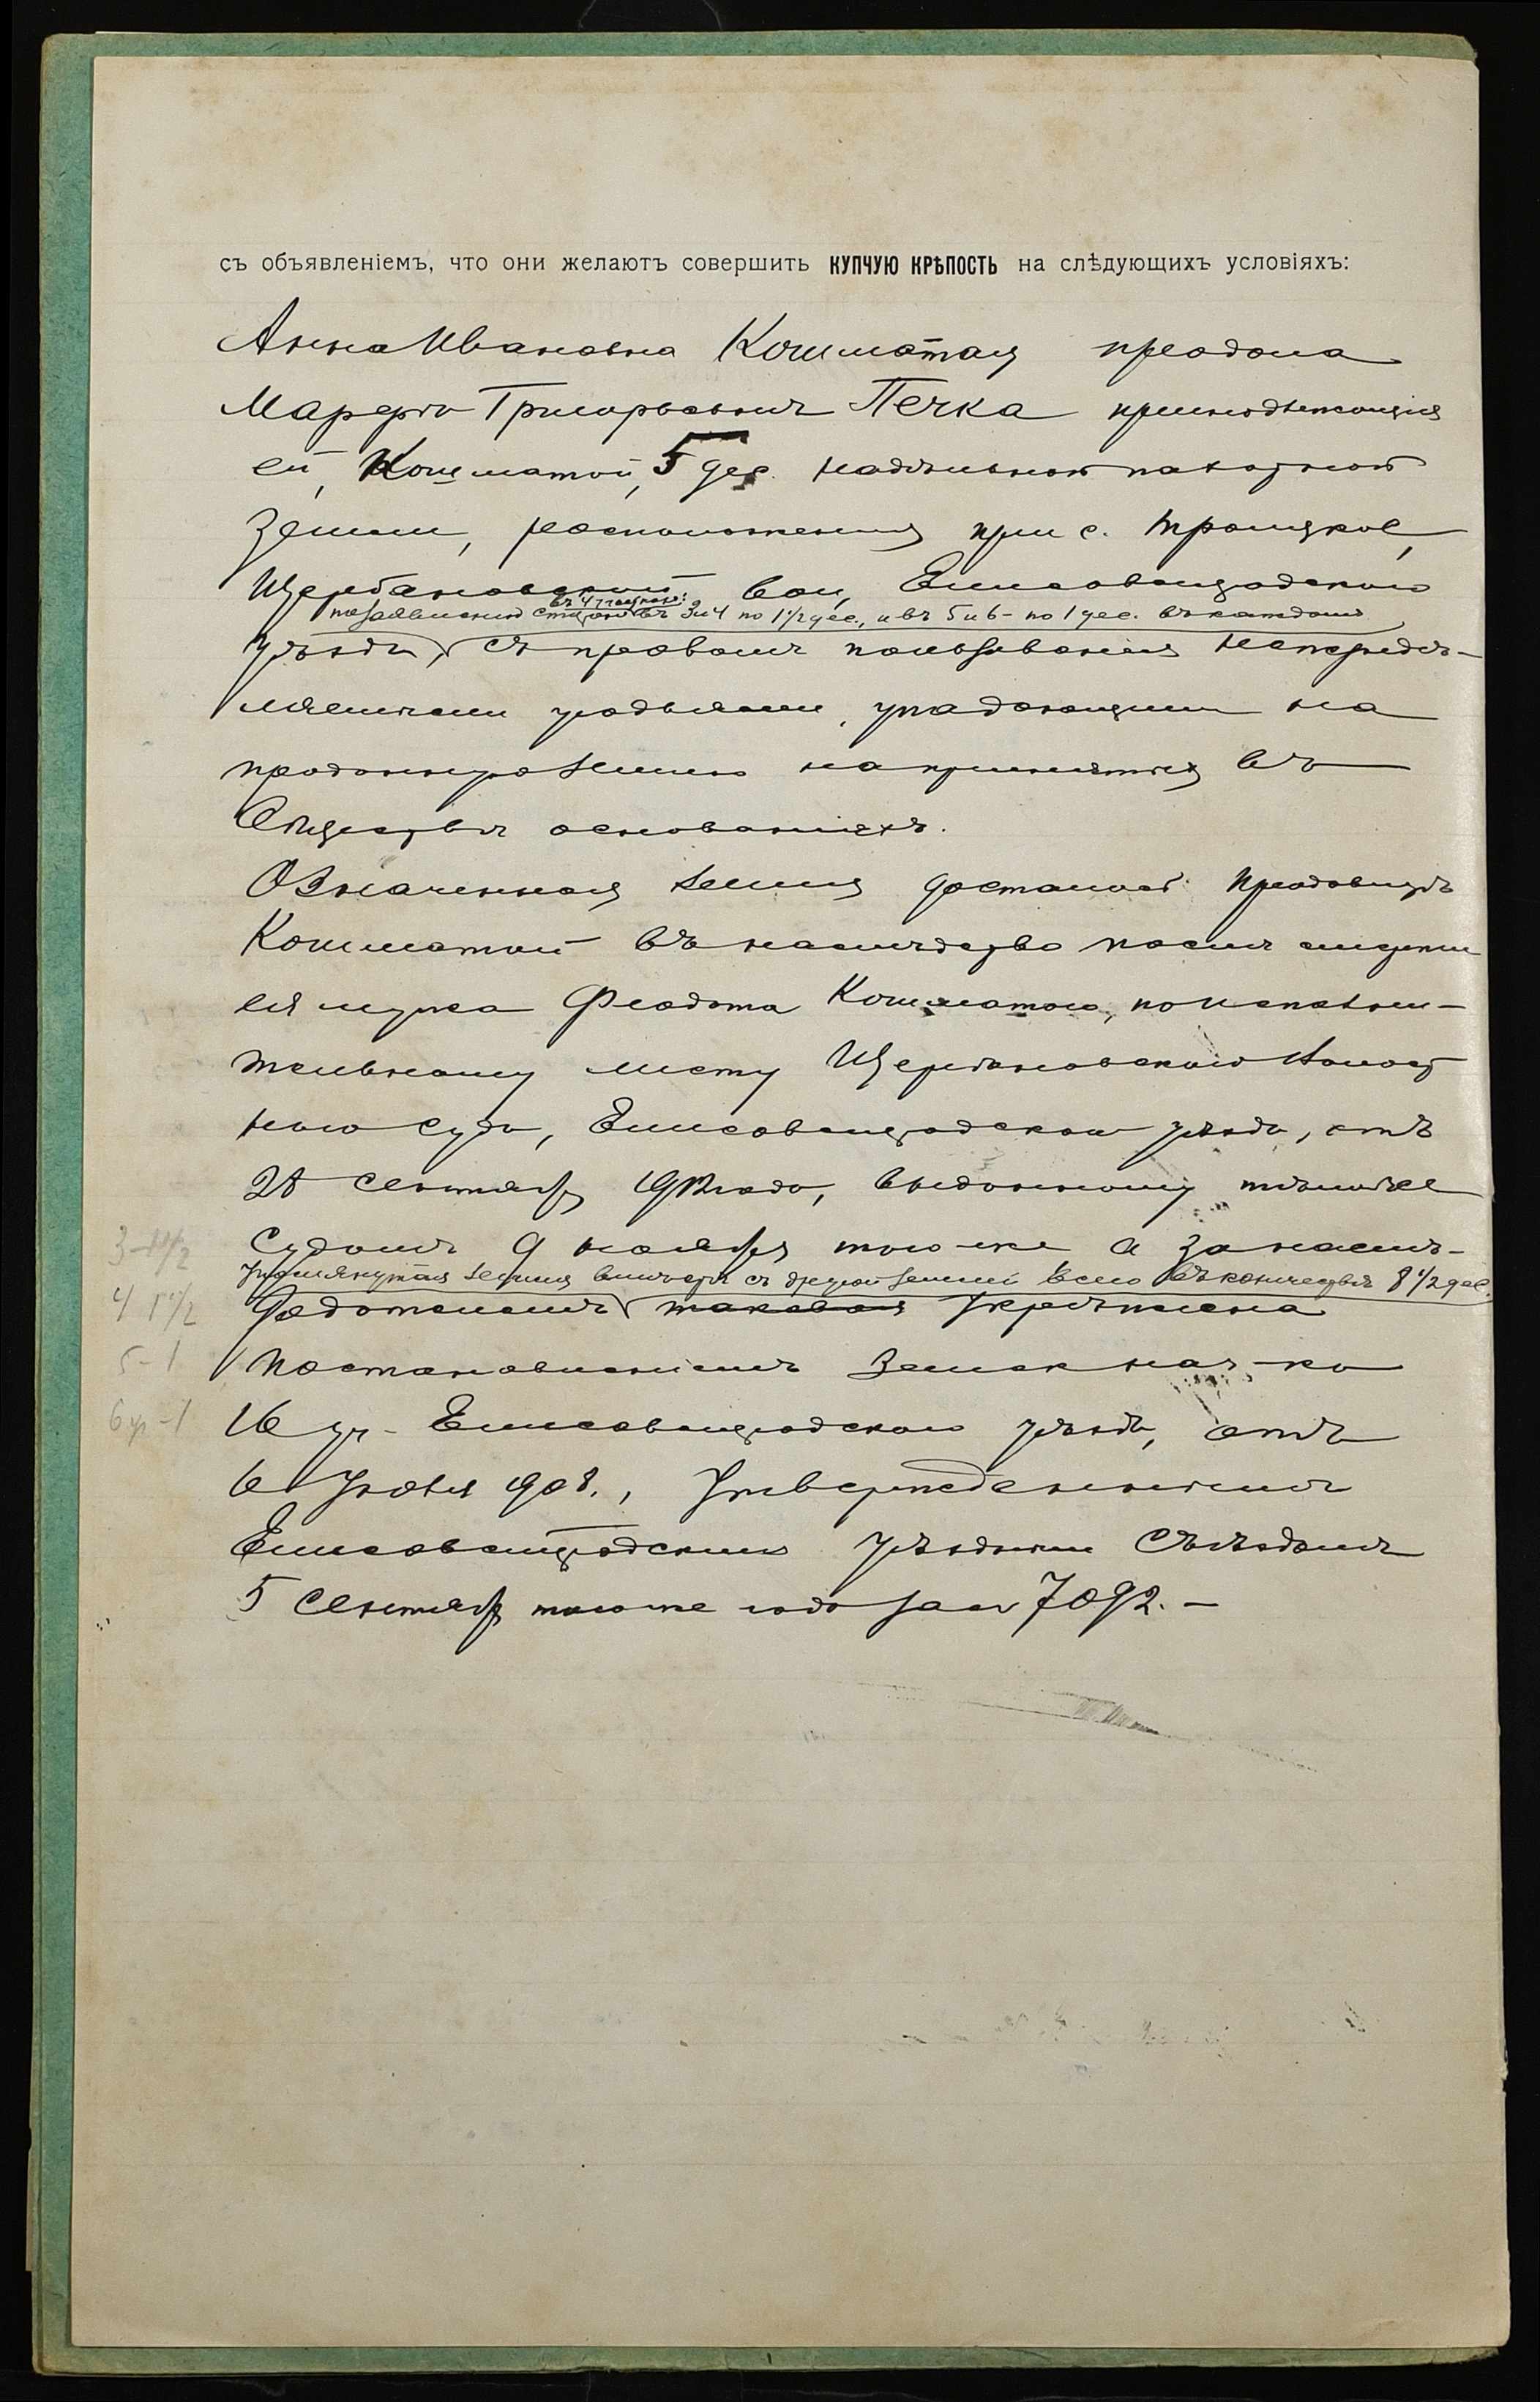 съ объявленіемъ, что они желаютъ совершить КУПЧУЮ КРѢПОСТЬ на слѣдующихъ условіяхъ:
Анна Ивановна Кошматая продала
Марфѣ Григорьевнѣ Печка принадлежащія
ей, Кошматой, 5 дес. надѣльной пахатной
земли, расположенныя при с. Троицкое,
Щербановской вол., Елисаветградскаго
въ 4 участкахъ:
по заявленію сторонъ въ 3 и 4 по 1 1/2 дес., и въ 5 и 6 - по 1 дес. въ каждомъ
уѣзда, съ правомъ пользованія непередѣ-
ляемыми угодьями, упадающими на
проданную землю на принятыхъ въ
Обществѣ основаніяхъ.
Означенная земля досталась продавцѣ
Кошматой въ наслѣдство послѣ смерти
ея мужа Феодота Кошматого, по исполни-
тельному листу Щербановского Волост
ного Суда, Елисаветградскаго уѣзда, отъ
28 сентября 1912 года, выданному тѣмъ же
Судомъ 9 ноября того же а за наслѣ-
3-1 1/2
упомянутая земля вмѣстѣ съ другой землей всего въ количествѣ 8 1/2 дес.
4 1 1/2
додателемъ таковая укрѣплена
5-1
постановленіемъ Земск нач-ка
6 уч-1
16 уч. Елисаветградскаго уѣзда, отъ
6 Іюня 1908., утвержденнымъ
Елисаветградскимъ уѣзднымъ Съѣздомъ
5 Сентября того же года за № 7092.-